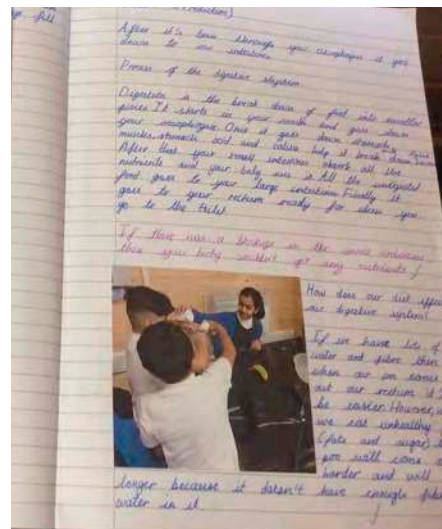 After it's been through your oesophagus it goes
down to our intestines.
Process of the digestive system
Digestion is the break down of food into smaller
pieces. It starts in your mouth and goes down
your oesophagus. Once it goes down
muscles, stomach acid and saliva help it break down
After that your small intestine absorb all the
nutrients and your body uses it. All the undigested
food goes to your large intestine. Finally it
goes to your rectum ready for when you
go to the toilet.
If there was a blockage in the small intestine
then your body wouldn't get any nutrients!
How does our diet affect
our digestive system?
If we have lots of
water and fibre then
when our poo comes
out our rectum it'll
be easier. However,
we eat unhealthy
(fats and sugar)
poo will come
harder and will
longer because it doesn't have enough
water in it.